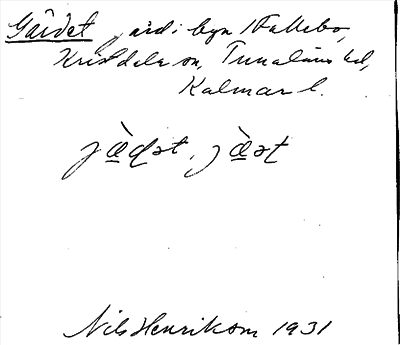 Gärdet gård i byn Fallebo,
Kristdala sn, Tunaläns hd,
Kalmar l.
jæ̀dət, jæ̀ət
Nils Henrikson 1931